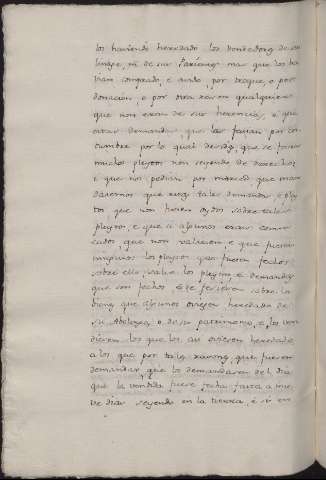 los haviendo heredado, los vendedores de su
linage, ni de sus Parientes mas que los ha
bian comprado, e avido, por troque, o por
donacion o por otra razon qualquiera
que non eran de sus herencias, e que
estas demandas que las facian por cos
tumbre por lo qual decides, que se facian
muchos pleytos non seyendo de derechos
e que nos pedian por merced que man
dasemos que estas tales demandas, e pley
tos que non fuesen oydos sobre tales
pleytos, e que si algunos eran comen
zados, que non valiesen, e que fuesen
ningunos los pleytos que fueren fechos
sobre ello, salvo los pleytos, e demandas
que son fechos, e se ficieren sobre los
bienes que algunos oviesen heredado de
su Abolengo, o de su patrimonio, e los ven
dieren los que los asi oviesen heredado
a los que por tales razones, que fuesen
demandar que lo demandasen del dia
que la vendida fuere fecha fasta a nue
ve dias seyendo en la tierra, e si en